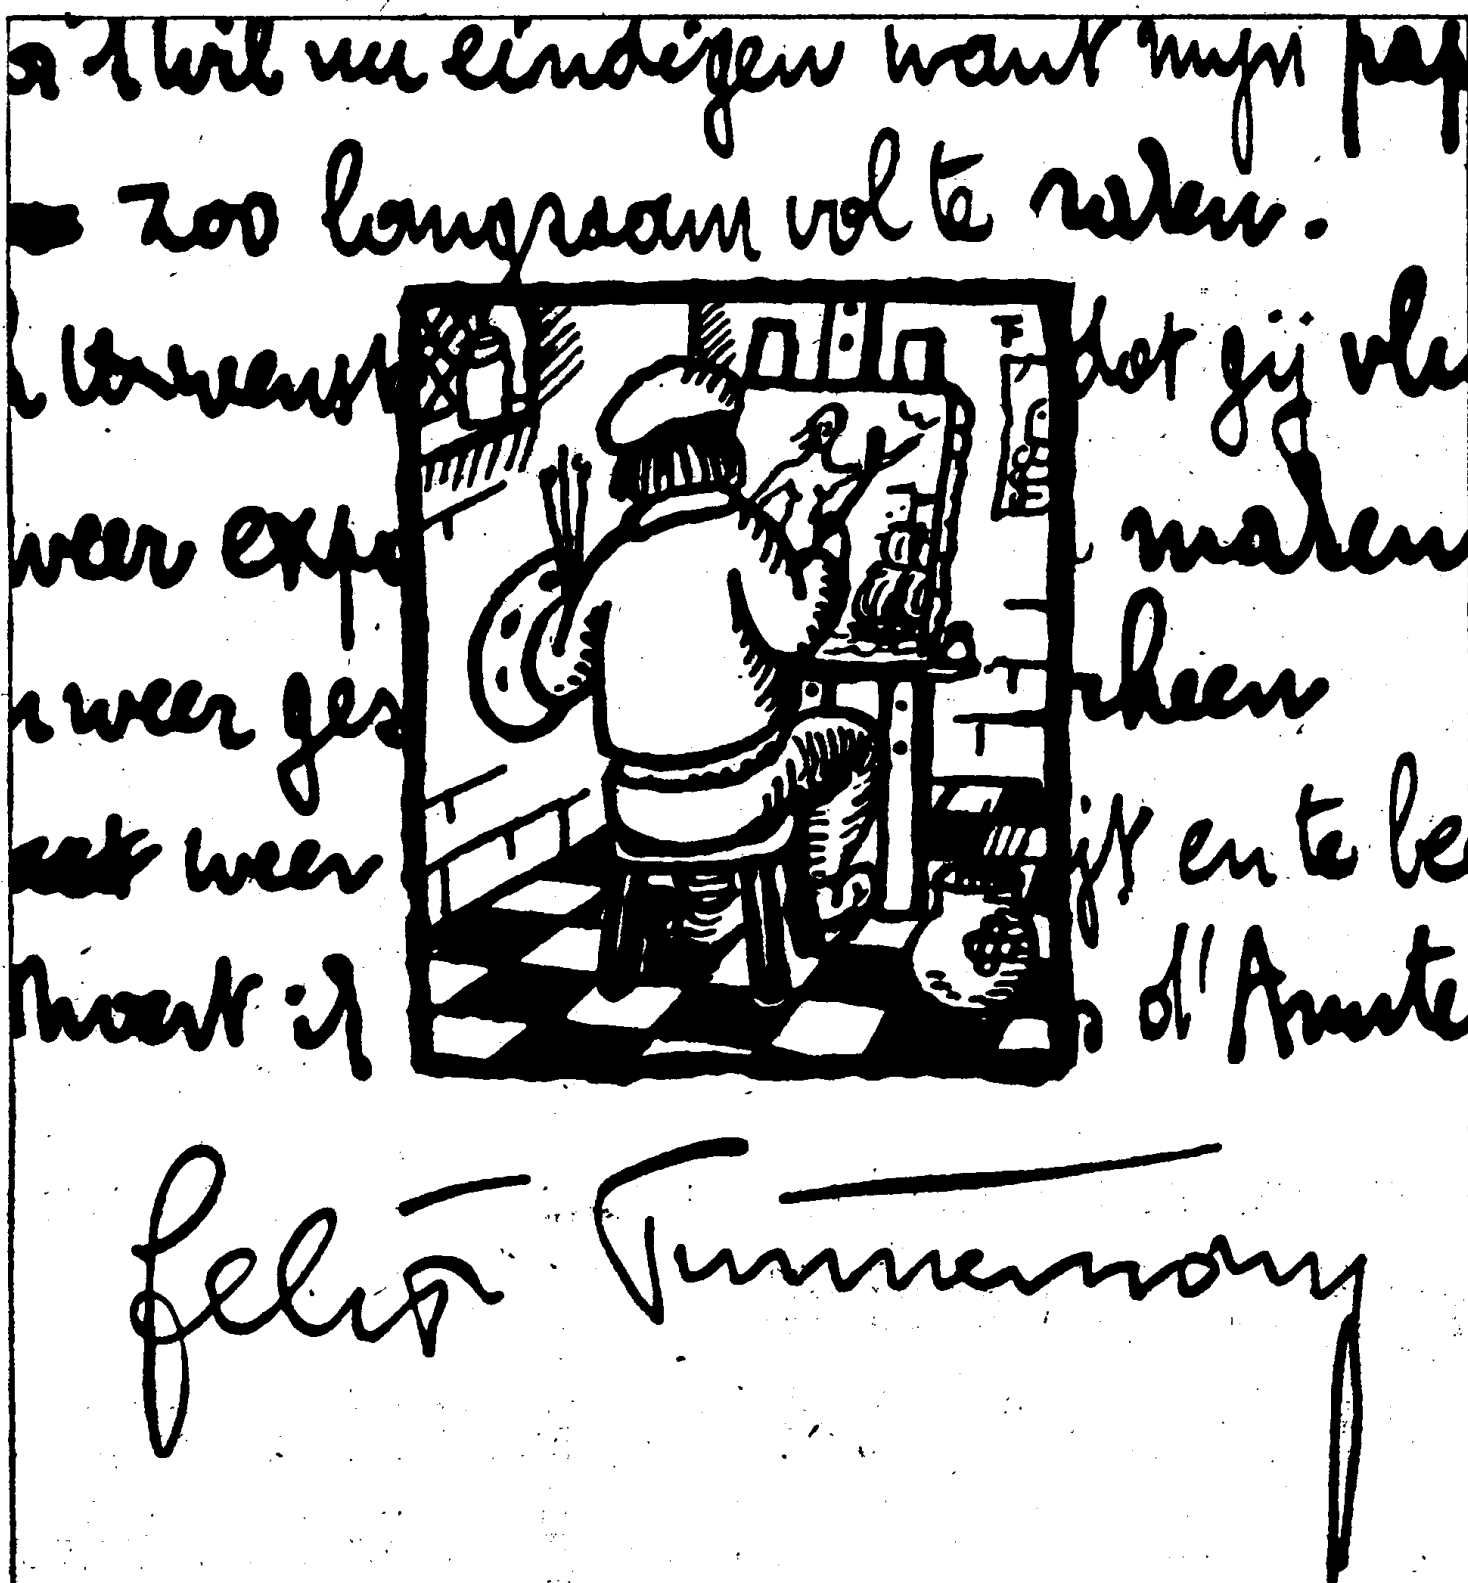 'k wil nu eindigen want mijn pap
zoo langzaam vol te raken.
dat gij vlu
weer expo maken
weer ges rheen
weer ijt en te be
Moest ik d'Amste
Felix Timmermans